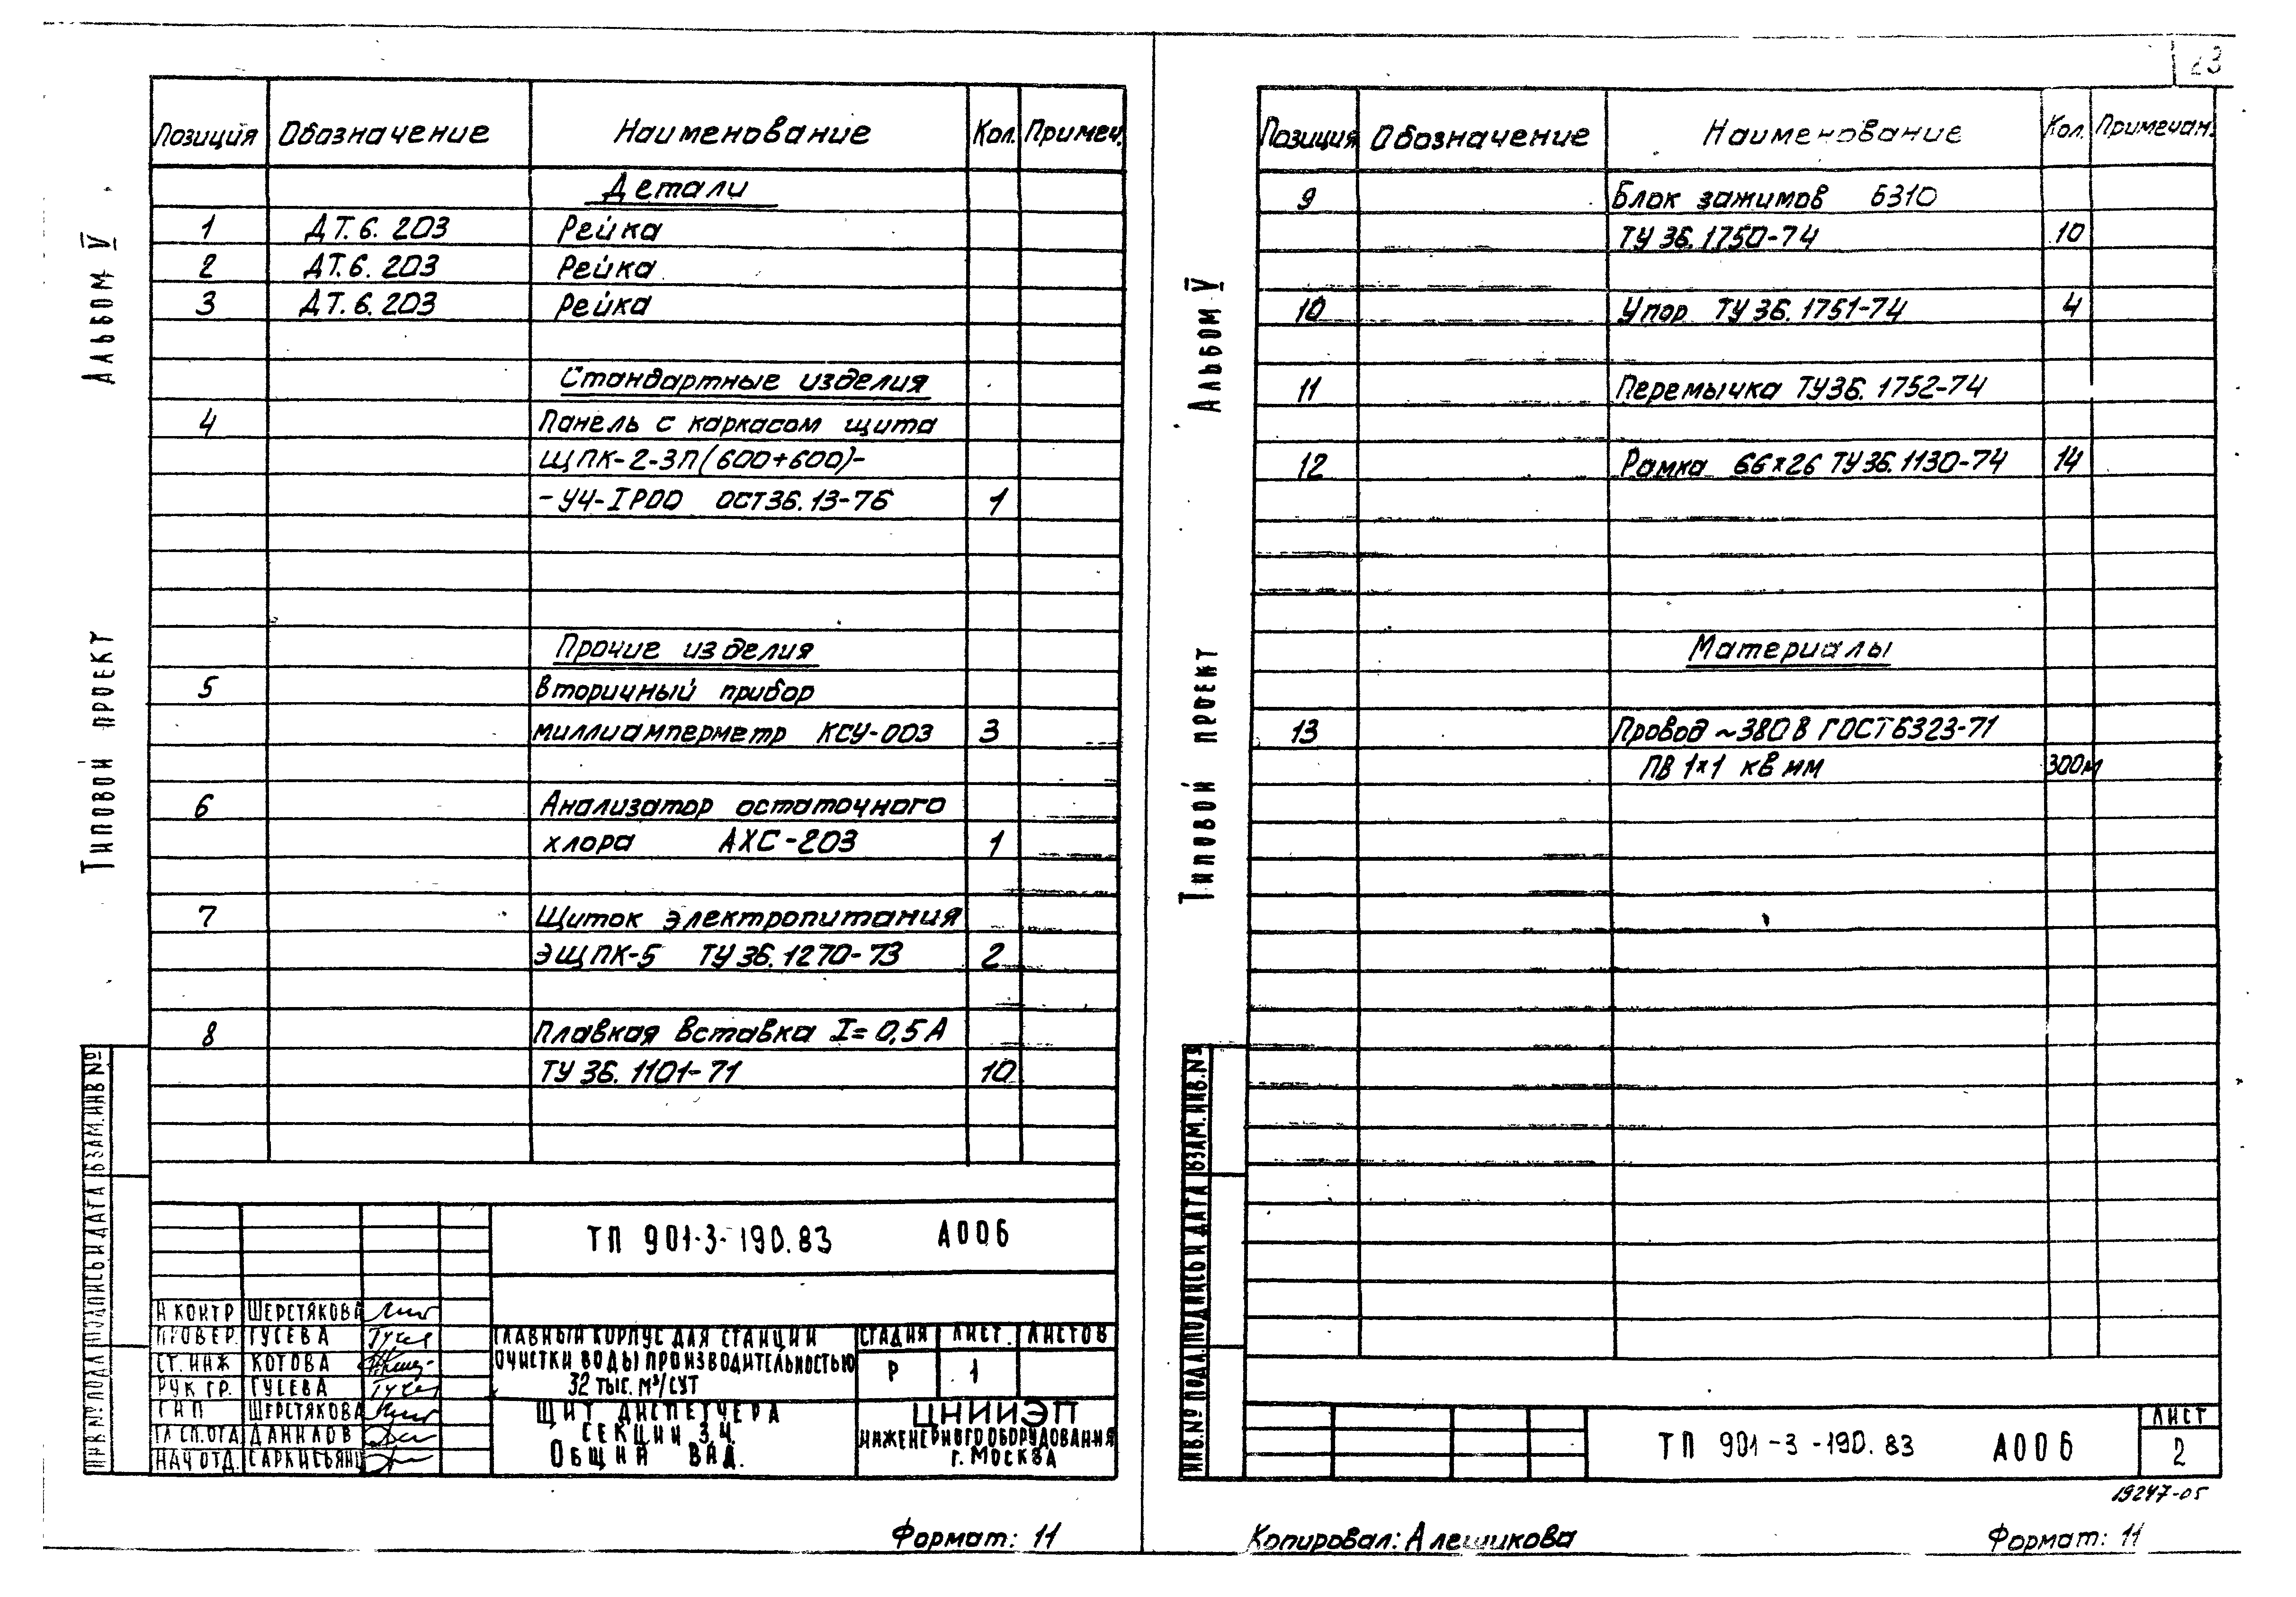 23
Альбом V
Типовой проект
Позиция Обозначение Наименование Кол. Примеч.
Детали
1 ДТ.6.203 Рейка
2 ДТ.6.203 Рейка
3 ДТ.6.203 Рейка
Стандартные изделия
4 Панель с каркасом щита
ЩПК-2-ЗП(600+600)-
-У4-IP00 ОСТ36.13-76 1
Прочие изделия
5 Вторичный прибор
миллиамперметр КСУ-003 3
6 Анализатор остаточного
хлора АХС-203 1
7 Щиток электропитания
ЭЩПК-5 ТУ 36.1270-73 2
8 Плавкая вставка I=0,5А
ТУ 36.1101-71 10
ИНВ № ПОДЛ ПОДПИСЬ И ДАТА ВЗАМ. ИНВ №
ТП 901-3-190.83 А006
Н КОНТР ШЕРСТЯКОВА
ПРОВЕР. ГУСЕВА
СТ. ИНЖ КОТОВА
РУК ГР. ГУСЕВА
ГИП ШЕРСТЯКОВА
ГЛ СП.ОТД ДАНИЛОВ
НАЧ ОТД. САРКИСЬЯНЦ
ГЛАВНЫЙ КОРПУС ДЛЯ СТАНЦИИ
ОЧИСТКИ ВОДЫ ПРОИЗВОДИТЕЛЬНОСТЬЮ
32 ТЫС. М³/СУТ
СТАДИЯ ЛИСТ. ЛИСТОВ
Р 1
ЩИТ ДИСПЕТЧЕРА
СЕКЦИИ 3,4.
ОБЩИЙ ВИД.
ЦНИИЭП
ИНЖЕНЕРНОГО ОБОРУДОВАНИЯ
Г. МОСКВА
Формат: 11
Альбом V
Типовой проект
Позиция Обозначение Наименование Кол. Примечан.
9 Блок зажимов БЗ10
ТУ 36.1750-74 10
10 Упор ТУ 36.1751-74 4
11 Перемычка ТУ36.1752-74
12 Рамка 66×26 ТУ36.1130-74 14
Материалы
13 Провод ~380В ГОСТ6323-71
ПВ 1×1 кв мм 300м
ИНВ.№ ПОДЛ. ПОДПИСЬ И ДАТА ВЗАМ. ИНВ.№
ТП 901-3-190.83 А006
ЛИСТ
2
19247-05
Копировал: Алешикова Формат: 11